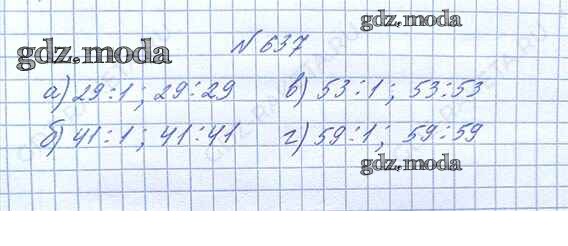 gdz.moda
№ 637
gdz.moda
а) 29:1; 29:29 в) 53:1; 53:53
б) 41:1; 41:41 г) 59:1; 59:59
gdz.moda